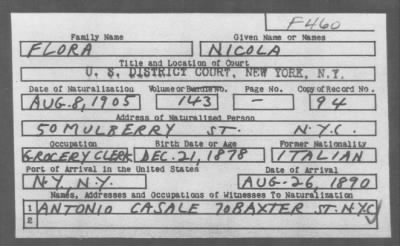 F460
Family Name Given Name or Names
FLORA NICOLA
Title and Location of Court
U. S. DISTRICT COURT, NEW YORK, N.Y.
Date of Naturalization Volume or Bundle No. Page No. Copy of Record No.
AUG. 8, 1905 143 — 94
Address of Naturalized Person
50 MULBERRY ST. N.Y.C.
Occupation Birth Date or Age Former Nationality
GROCERY CLERK DEC. 21, 1878 ITALIAN
Port of Arrival in the United States Date of Arrival
N.Y., N.Y. AUG-26, 1890
Names, Addresses and Occupations of Witnesses To Naturalization
1 ANTONIO CASALE 70 BAXTER ST. N.Y.C.
2